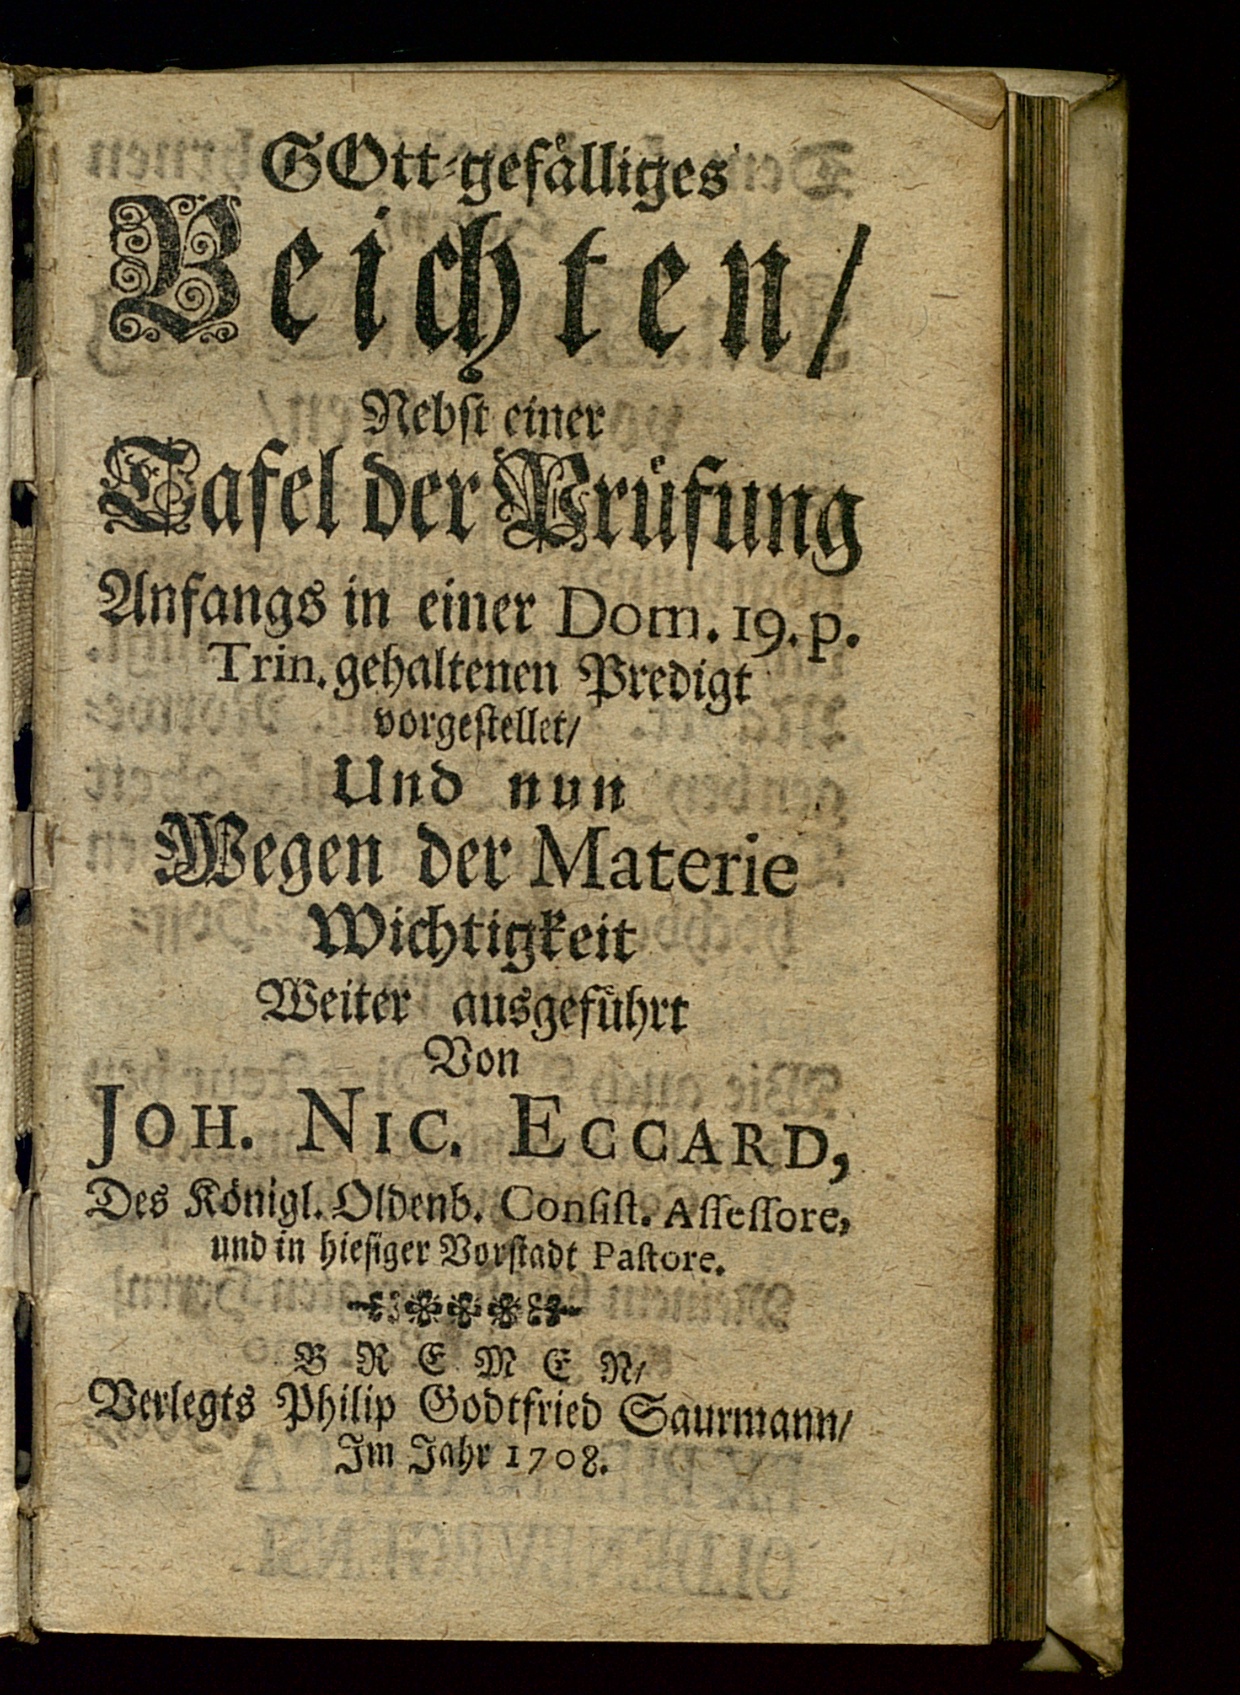 GOtt-gefälliges
Beichten/
Nebst einer
Tafel der Prüfung
Anfangs in einer Dom. 19. p.
Trin. gehaltenen Predigt
vorgestellet/
Und nun
Wegen der Materie
Wichtigkeit
Weiter ausgeführt
Von
JOH. NIC. ECCARD,
Des Königl. Oldenb. Consist. Assessore,
und in hiesiger Vorstadt Pastore.
BREMEN/
Verlegts Philip Godtfried Saurmann/
Im Jahr 1708.